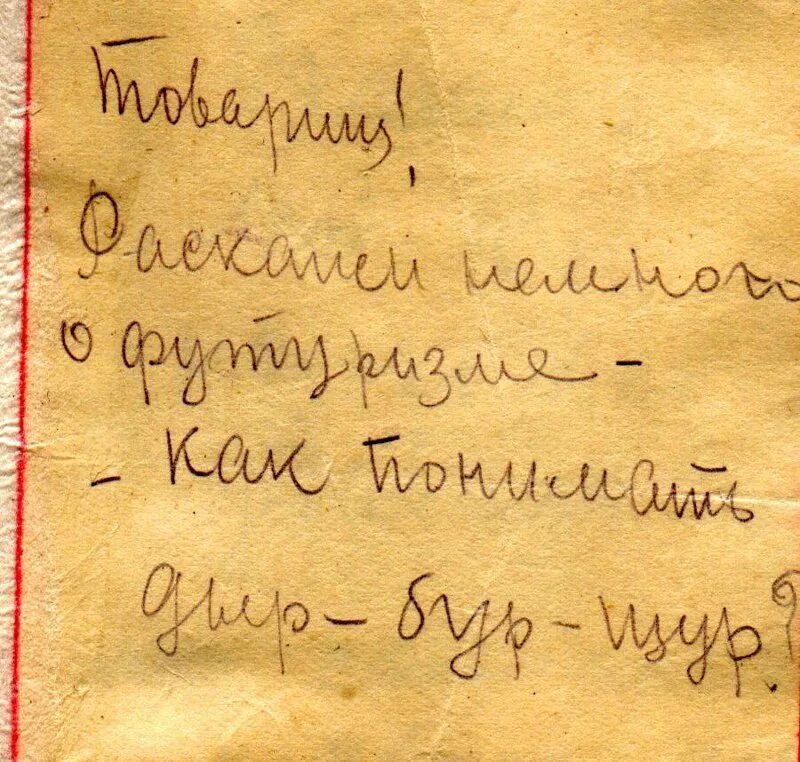 Товарищ!
Раскажи немного
о футуризме -
- как понимать
дыр - бур - щур?